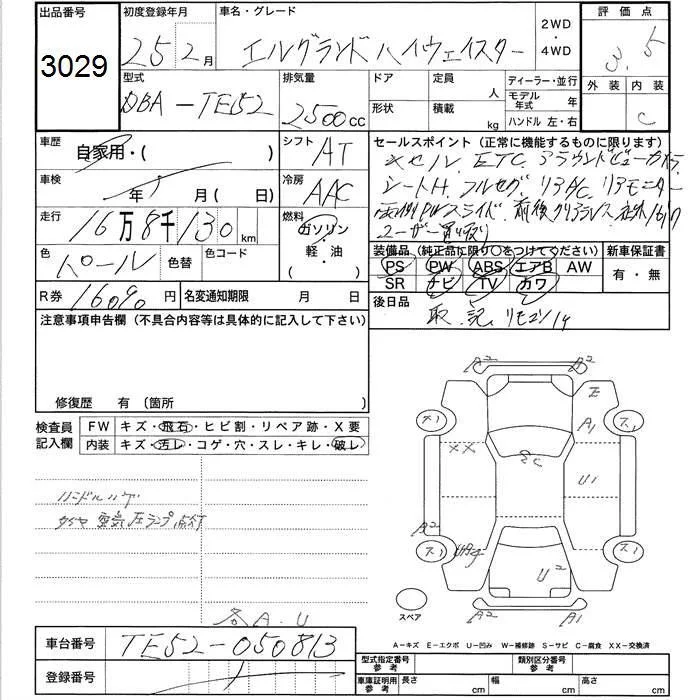 出品番号
3029
初度登録年月
25 2月
車名・グレード
エルグランド ハイウェイスター
2WD
・
4WD
評価点
3.5
外装 内装
C
型式
DBA-TE52
排気量
2500cc
ドア
形状
定員 人
積載 kg
ディーラー・並行
モデル年式 年
ハンドル 左・右
車歴 自家用・( )
シフト AT
車検 年 月(日)
冷房 AAC
走行 16万8千130km
燃料
ガソリン
・
軽・油
色 パール
色替
色コード
R券 16090円
名変通知期限 月 日
セールスポイント(正常に機能するものに限ります)
×セル.ETC.アラウンドビューカメラ
シートH.フルセグ.リアAC.リアモニター
両側PWスライド.前後クリアランス
ユーザー買い取り
装備品(純正品に限り○をつけてください)
PS PW ABS エアB AW
SR ナビ TV カワ
新車保証書
有・無
後日品
取.記.リモコン1ケ
注意事項申告欄(不具合内容等は具体的に記入して下さい)
修復歴 有〔箇所
検査員記入欄
FW キズ・飛石・ヒビ割・リペア跡・X要
内装 キズ・汚レ・コゲ・穴・スレ・キレ・破レ
ハンドルハゲ
タイヤ空気圧ランプ点灯
各A.U
A2 A2
E
ス1 A1 ス1
XX
U1
A2
ス1 ス1
U2
A2 A1
スペア
A-キズ E-エクボ U-凹み W-補修跡 S-サビ C-腐食 XX-交換済
車台番号 TE52-050813
登録番号
型式指定番号参考
類別区分番号参考
車庫証明用参考 長さ cm 幅 cm 高さ cm